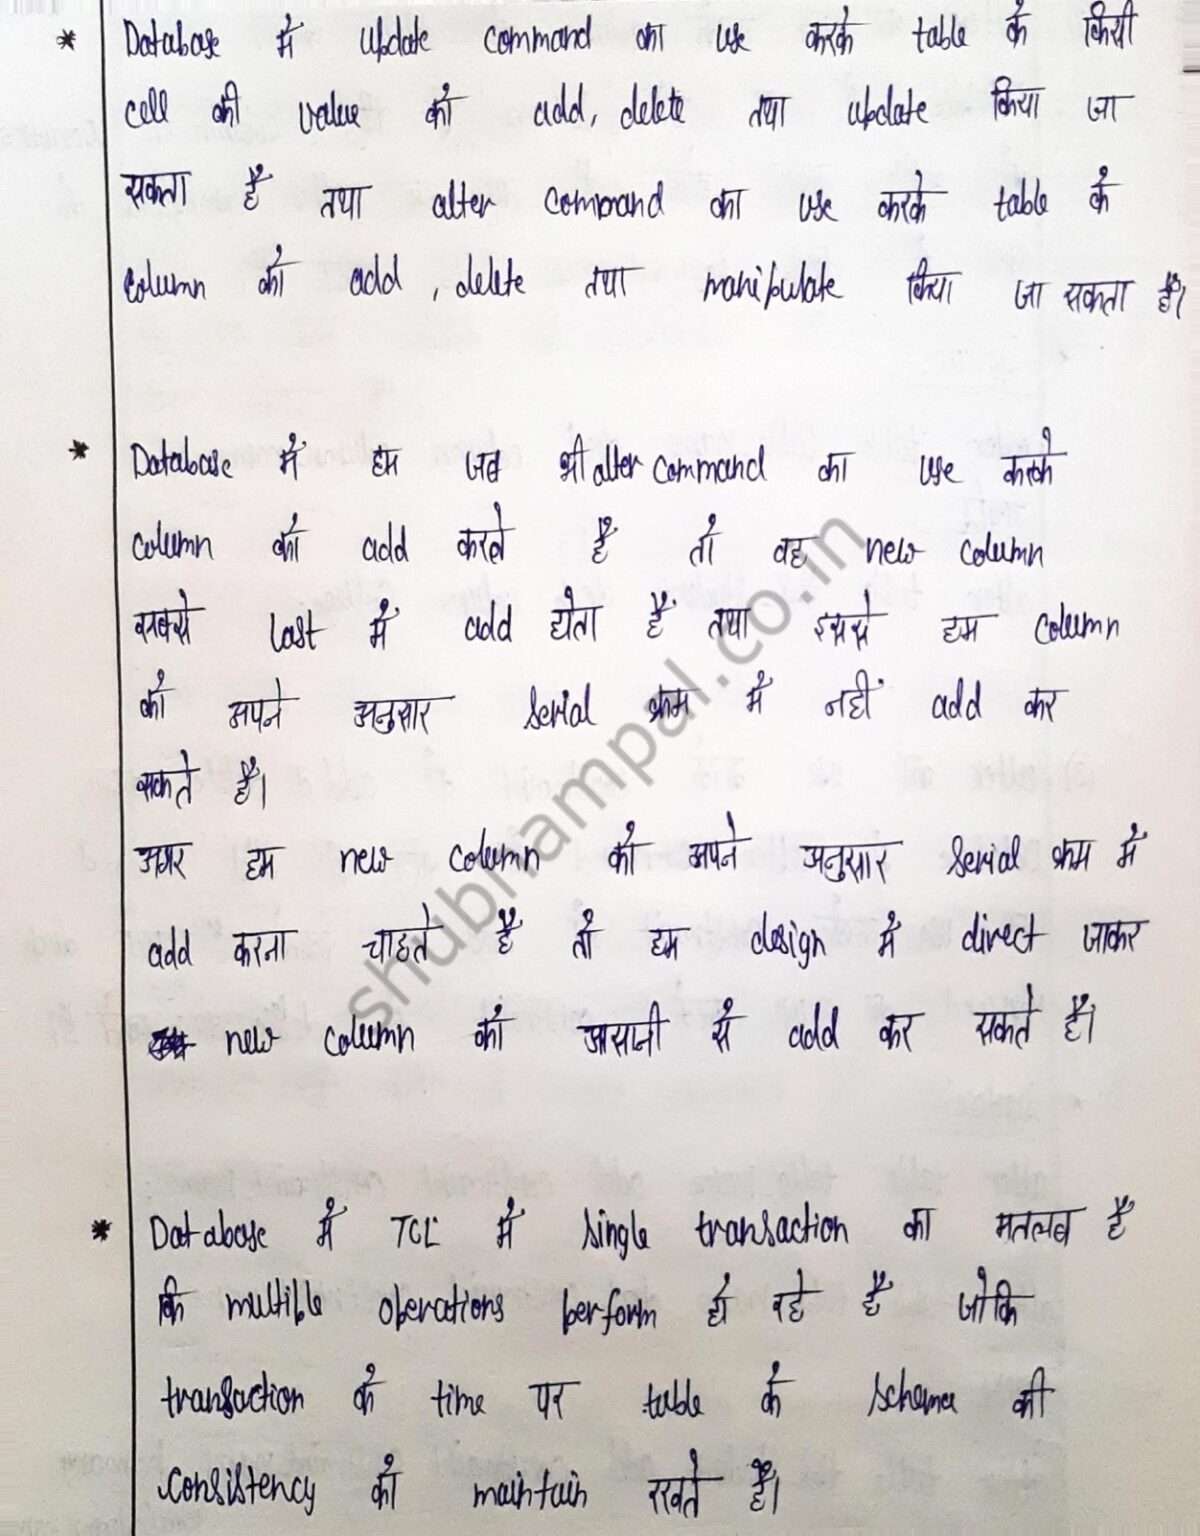 * Database में update command का use करके table के किसी
cell की value को add, delete तथा update किया जा
सकता है तथा alter command का use करके table के
column को add, delete तथा manipulate किया जा सकता है।
* Database में हम जब भी alter command का use करके
column को add करते हैं तो वह new column
सबसे last में add होता है तथा इससे हम column
को अपने अनुसार serial क्रम में नहीं add कर
सकते हैं।
अगर हम new column को अपने अनुसार serial क्रम में
add करना चाहते हैं तो हम design में direct जाकर
new column को आसानी से add कर सकते हैं।
* Database में TCL में single transaction का मतलब है
कि multiple operations perform हो रहे हैं जोकि
transaction के time पर table के schema की
consistency को maintain रखते हैं।
shubhampal.co.in